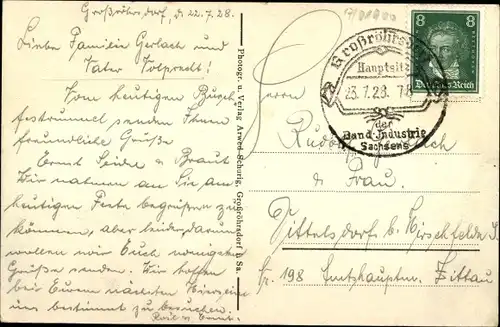 Großröhrsdorf, d. 22.7.28.
Liebe Familie Gerlach und
Vater Volprecht!
Vom heutigen Bursch-
festrummel senden Ihnen
freundliche Grüße
Ernst Seidel u Braut
Wir nahmen an Sie am
heutigen Feste begrüßen zu
können, aber leider, darum
wollen wir Euch wenigstens
Grüße senden. Wir hoffen
bei Eurem nächsten Hiersein
uns bestimmt zu besuchen.
Photogr. u. Verlag Arwed Schurig, Großröhrsdorf i. Sa.
8 8
Deutsches Reich
Großröhrsdorf
Hauptsitz
23.7.28. 7
der
Band-Industrie
Sachsens
Herrn
Rudolf
u Frau.
Dittelsdorf b. Hirschfelde S.
Nr. 198 Amtshauptm. Zittau